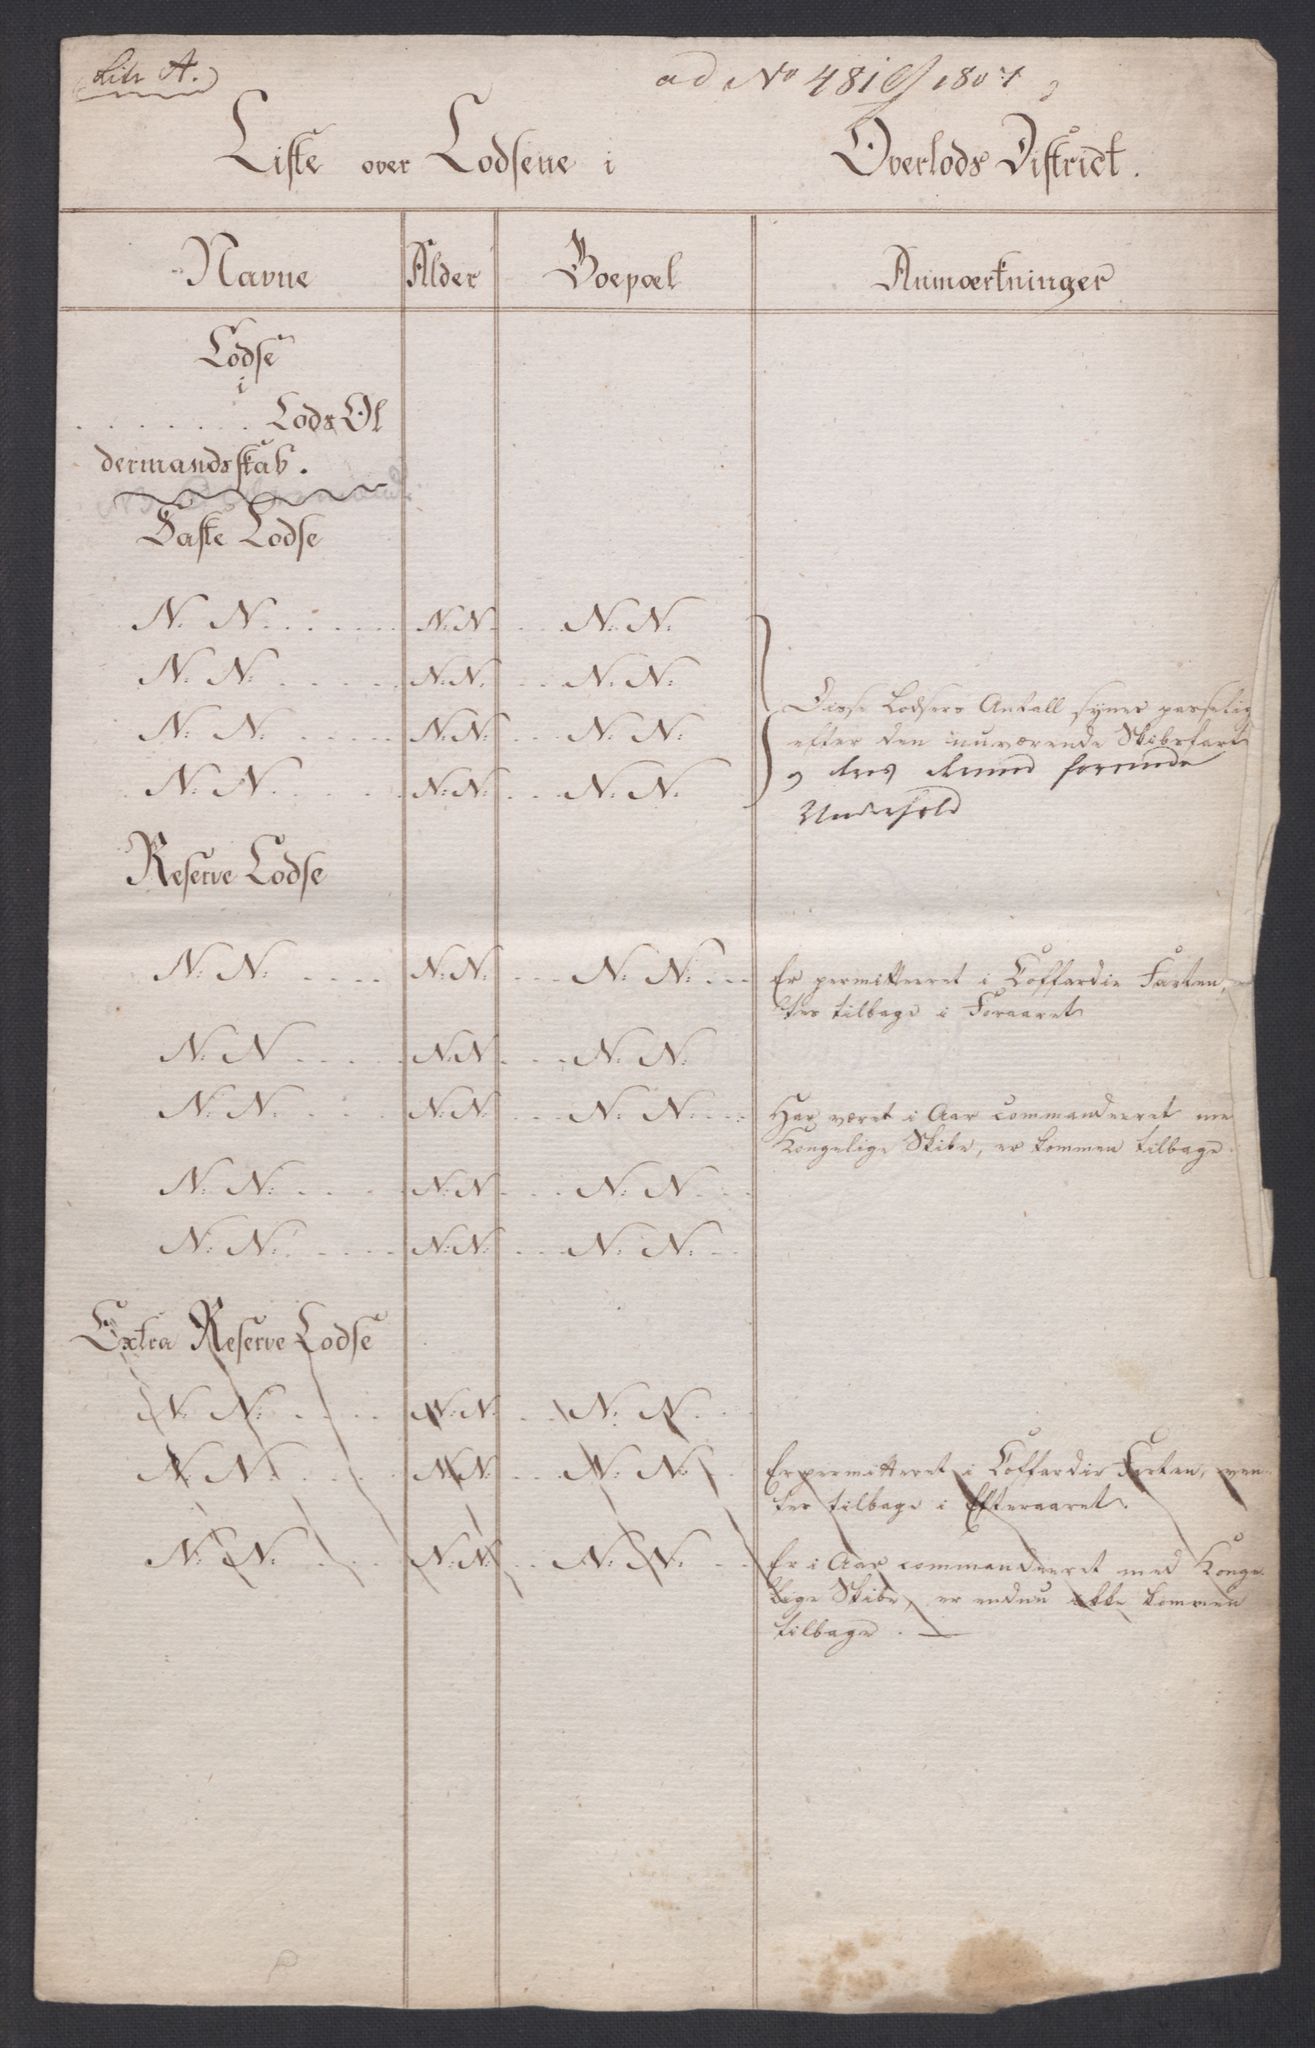 Litr A.
ad No 481 1807
Liste over Lodsene i Overlods District.
Navne Alder Boepæl Anmærkninger
Lodse
i
. . . . . . . . Lods Ol
dermandsskab.
Faste Lodse
N: N: . . . . . N:N: . . . N: N:
N: N: . . . . . N:N: . . . N: N:
N: N: . . . . . N:N: . . . N: N:
N: N: . . . . . N:N: . . . N: N:
Disse Lodsers Antall synes passelig
efter den nuværende Skibsfart
og deres derved
Underhold
Reserve Lodse
N: N: . . . . N:N: . . . N: N: . . . Er permitteret i Coffardie Farten,
tes tilbage i Foraaret
N: N . . . . . N:N . . . . N: N:
N: N: . . . . . N:N: . . . N: N: . . . Har været i Aar commanderet me
Kongelige Skibe, er kommen tilbage.
N: N: . . . . . N:N . . . . N: N: . . .
N: N: . . . . . N:N: . . . N: N: . . .
Extra Reserve Lodse
N: N: . . . . . N:N: . . . N: N: . . .
N: N: . . . . . N:N: . . . N: N: . . Er permitteret i Coffardie Farten, ven-
tes tilbage i Efteraaret.
N: N: . . . . N:N: . . . N: N: . . Er i Aar commanderet med Konge-
lige Skibe, er endnu ikke kommen
tilbage. —